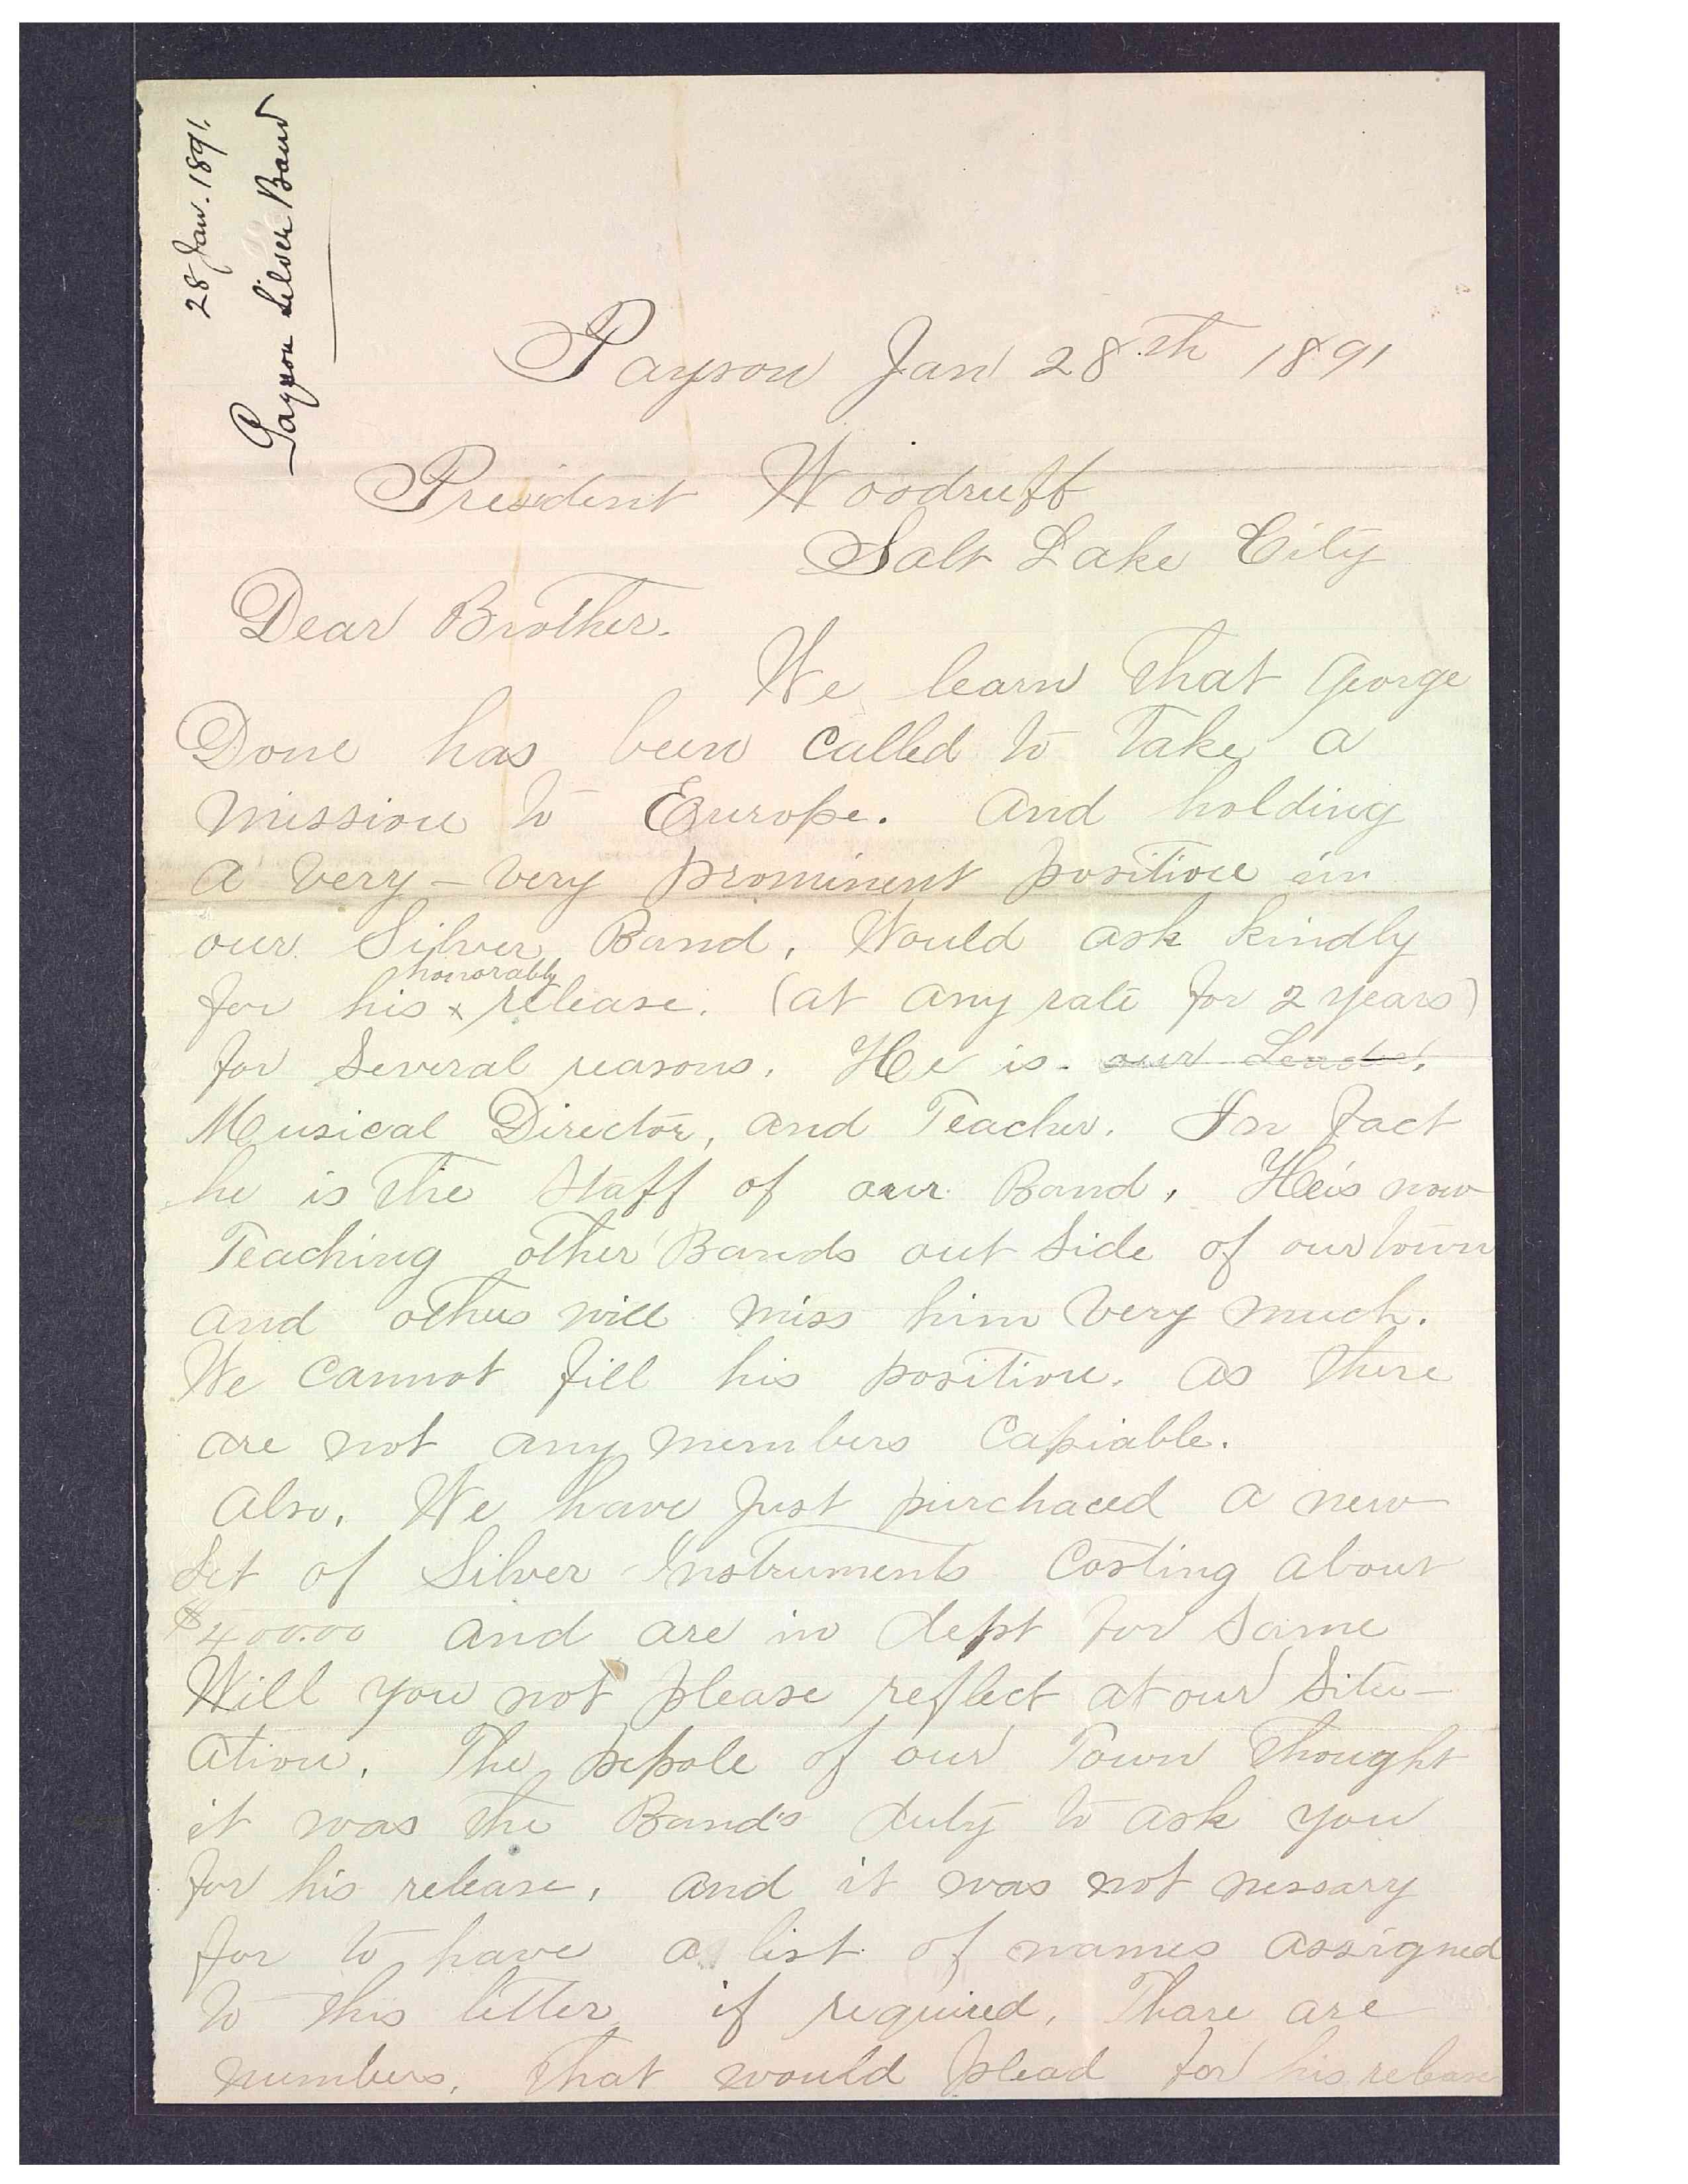 28 Jan. 1891.
Payson Silver Band
Payson Jan 28th 1891
President Woodruff
Salt Lake City
Dear Brother.
We learn that George
Done has been called to take a
mission to Europe. and holding
a very – very prominent position in
our Silver Band, Would ask kindly
honorably
for his x release. (at any rate for 2 years)
for Several reasons. He is. our Leader,
Musical Director, and Teacher. In fact
he is the Staff of our Band, He is now
Teaching other Bands out Side of our town
and others will miss him very much.
We cannot fill his position. as there
are not any members Capiable.
Also, We have Just purchaced a new
Set of Silver Instruments Costing about
$400.00 and are in dept for Same
Will you not please reflect at our Situ–
ation. The pepole of our Town thought
it was the Band's duty to ask you
for his release, and it was not nessary
for to have a list of names assigned
to this letter if required, Thare are
numbers. that would plead for his release